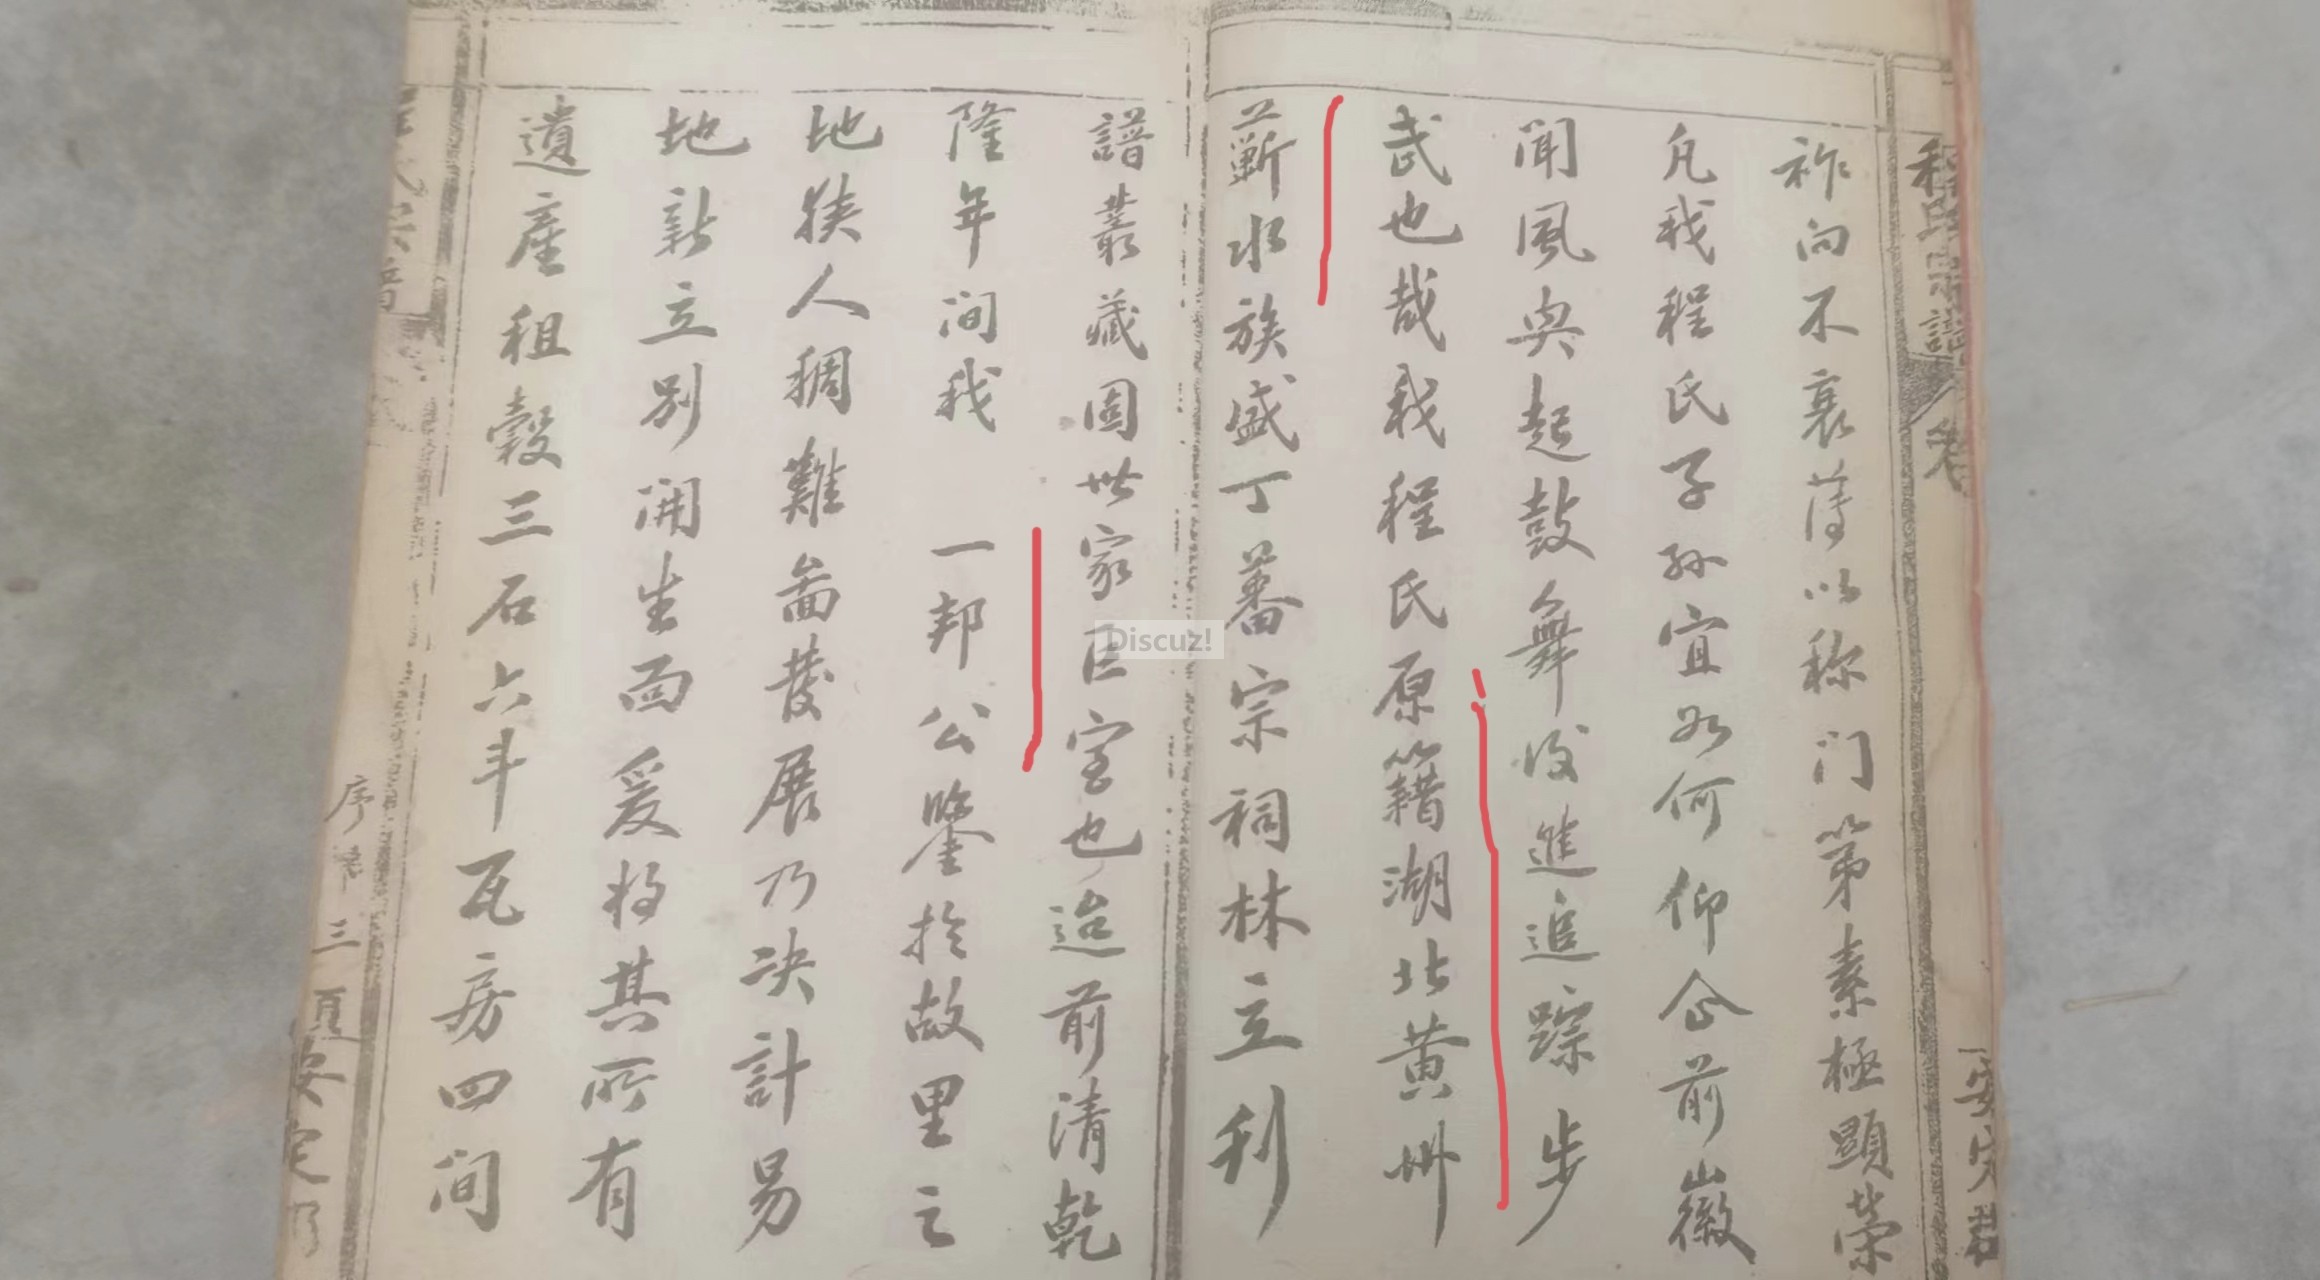 程氏宗譜
卷
安定君
祚向不衰薄以称门第素極顕荣
凡我程氏子孙宜如何仰企前徽
闻風興起鼓舞後進追踪步
武也哉我程氏原籍湖北黄州
蕲水族盛丁蕃宗祠林立利
譜叢藏固世家巨室也迨前清乾
隆年间我 一邦公鑒於故里之
地狭人稠難啚發展乃决計易
地新立别開生面爰将其所有
遺産租穀三石六斗瓦房四间
氏宗譜
序
三頁
安定
Discuz!